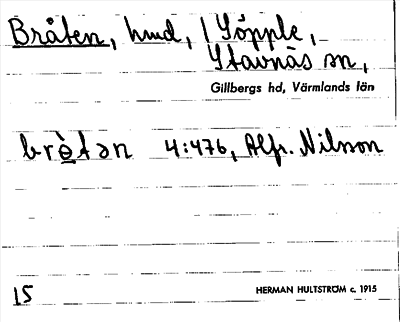 Bråten, hmd, / Göpple,
Stavnäs sn,
Gillbergs hd, Värmlands län
brètan 4:476, Alfr. Nilsson
15 HERMAN HULTSTRÖM c. 1915